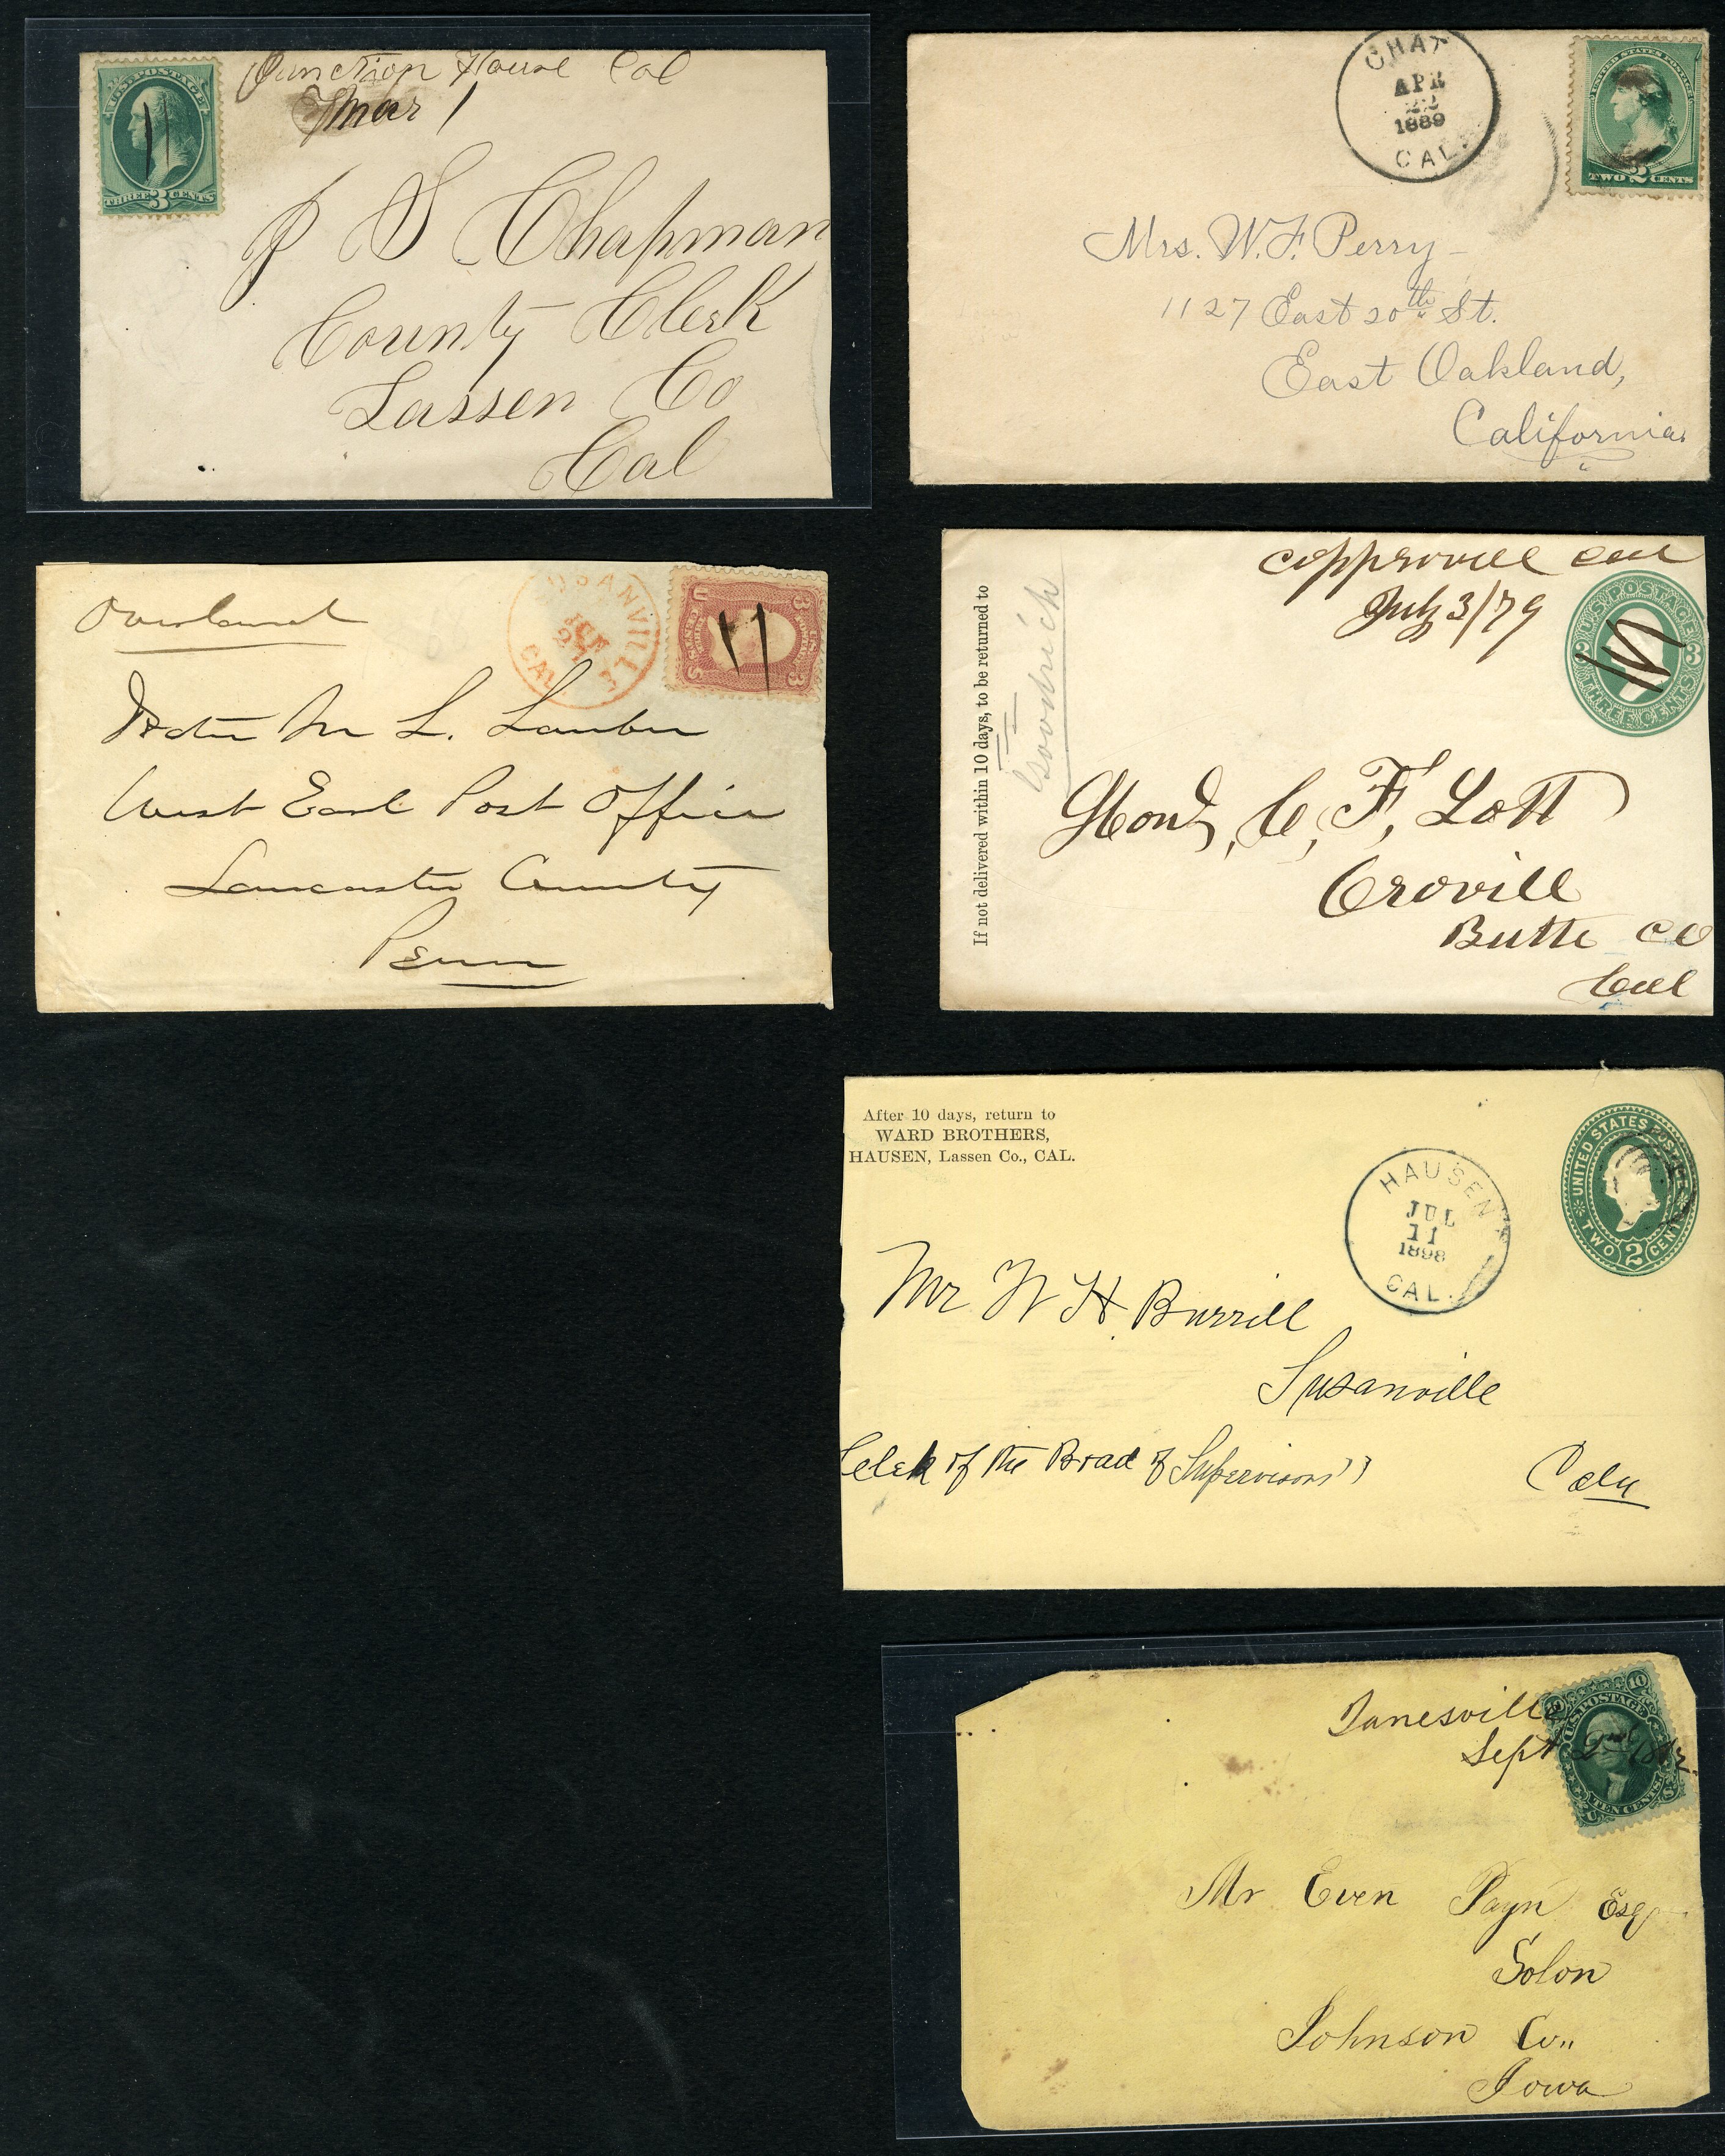 Junction House Cal
Mar 1
U.S. POSTAGE
THREE 3 CENTS
J S Chapman
County Clerk
Lassen Co
Cal
CHAT
APR
22
1889
CAL.
UNITED STATES POSTAGE
TWO 2 CENTS
Mrs. W. F. Perry
1127 East 20th St.
East Oakland,
California
Overland
USANVILLE
CAL
3 3
U S
West Earl Post Office
Lancaster County
Penn
If not delivered within 10 days, to be returned to
Goodrich
Copperville Cal
July 3/79
U.S. POSTAGE
3 3
THREE CENTS
Hon, C, F, Lott
Orovill
Butte Co
Cal
After 10 days, return to
WARD BROTHERS,
HAUSEN, Lassen Co., CAL.
HAUSEN
JUL
11
1898
CAL.
UNITED STATES POSTAGE
TWO 2 CENTS
Mr W H Burrill
Susanville
Celek of the Brad of Supervisors"
Calu
Janesville
Sept 2nd
10 10
U.S. POSTAGE
TEN CENTS
Mr Even Payn Esq
Solon
Johnson Co,,
Iowa